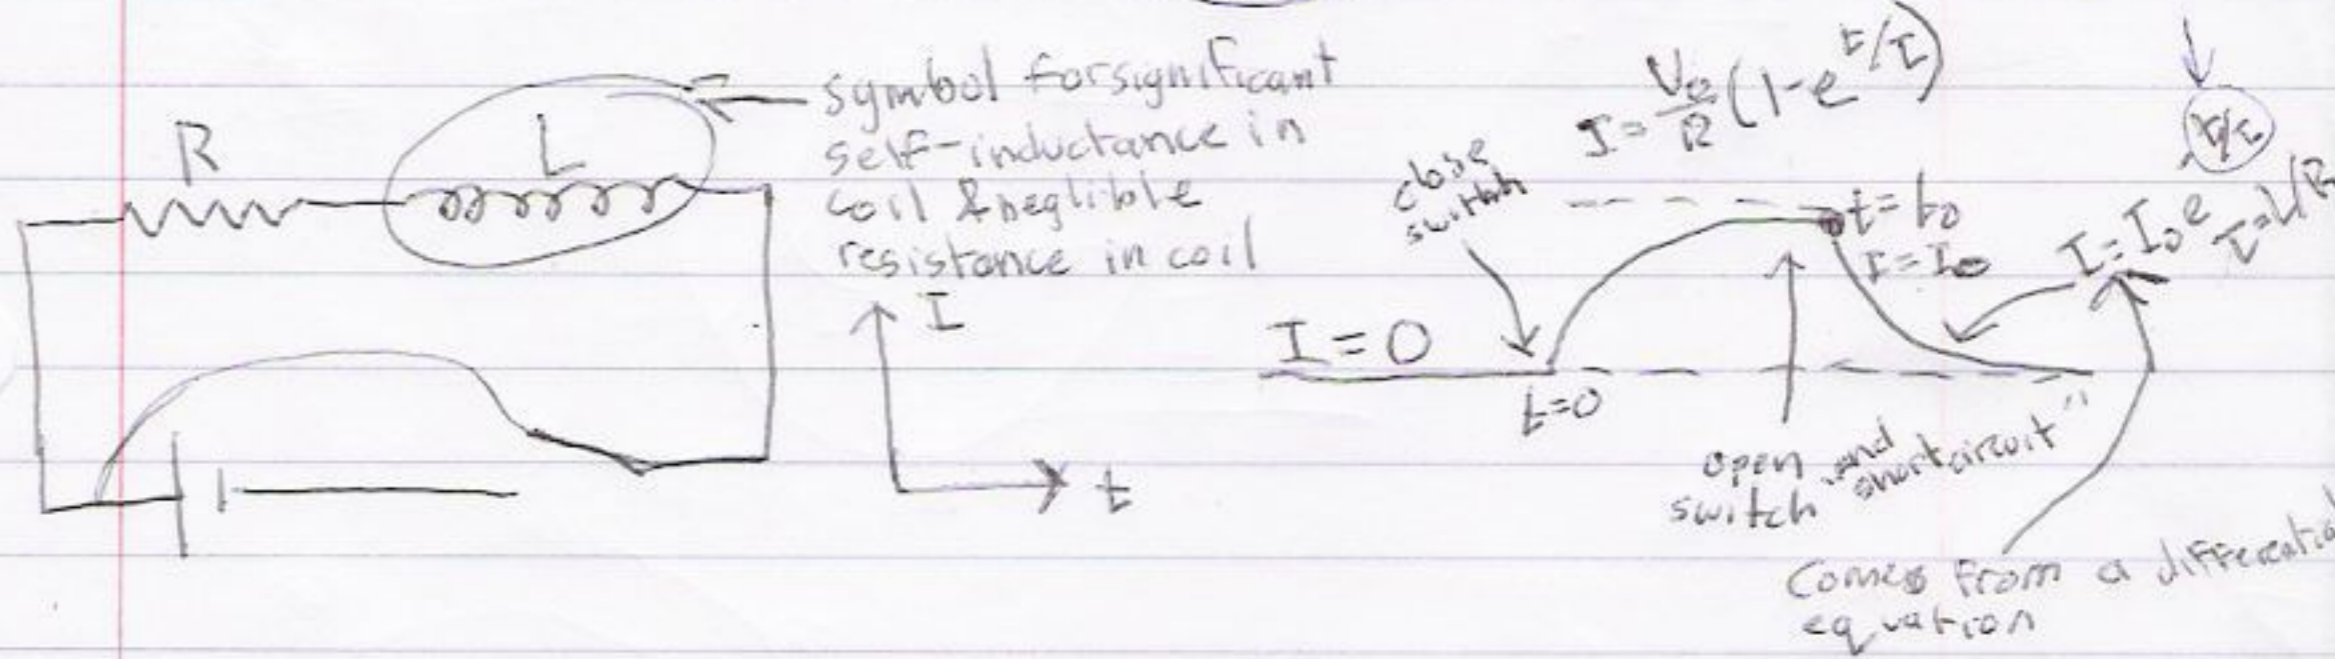 R
L
symbol for significant
self-inductance in
coil & neglible
resistance in coil
I
t
I = V₀/R (1-e^t/τ)
close
switch
I = 0
t=0
t=t₀
I=I₀
open
switch "and
shortcircuit"
I = I₀ e^t/τ
τ=L/R
Comes from a differential
equation